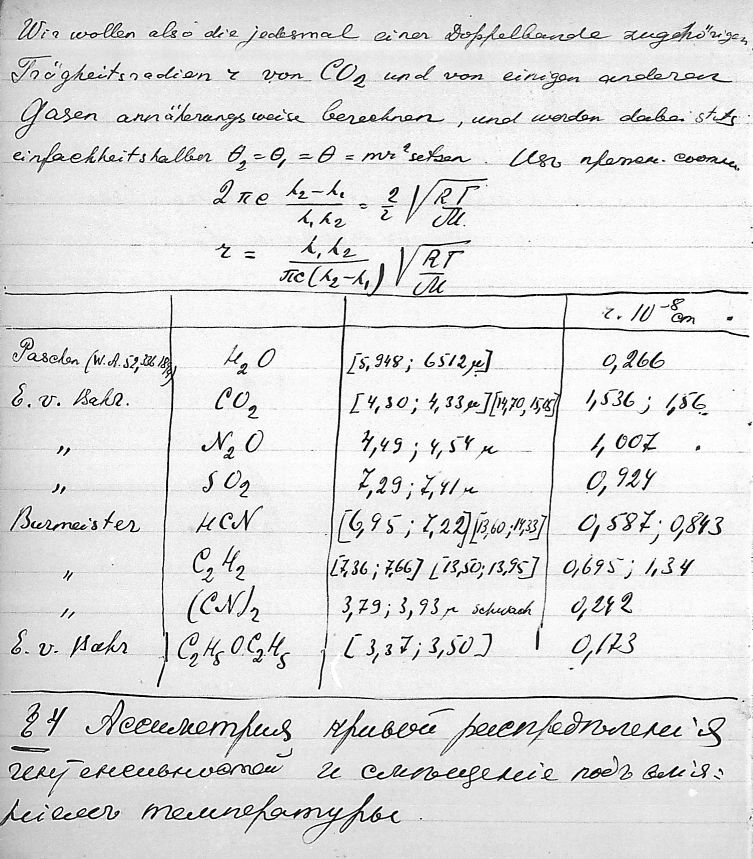 Wir wollen also die jedesmal einer Doppelbande zugehörigen
Trägheitsradien r von CO2 und von einigen anderen
Gasen annäherungsweise berechnen, und werden dabei stets
einfachheitshalber θ2 = θ1 = θ = mr² setzen. Изъ
2πc (λ2 − λ1)/(λ1 λ2) = 2/r √(RT/M)
r = λ1 λ2/(πc(λ2 − λ1)) √(RT/M)
r. 10⁻⁸ cm
Paschen (W.A. 52, H2O [5,948; 6512 μ] 0,266
E. v. Bahr. CO2 [4,30; 4,33 μ] [14,70, 15,05] 1,536; 1,56
„ N2O 4,49; 4,54 μ 1,007
„ SO2 7,29; 7,41 μ 0,924
Burmeister HCN [6,95; 7,22] [13,60; 14,33] 0,587; 0,843
„ C2H2 [7,36; 7,66] [13,50; 13,95] 0,695; 1,34
„ (CN)2 3,79; 3,93 μ schwach 0,242
E. v. Bahr C2H5OC2H5 [3,37; 3,50] 0,173
§4 Ассиметрия кривой распредѣленія
интенсивностей и смѣщеніе подъ влія=
ніемъ температуры.